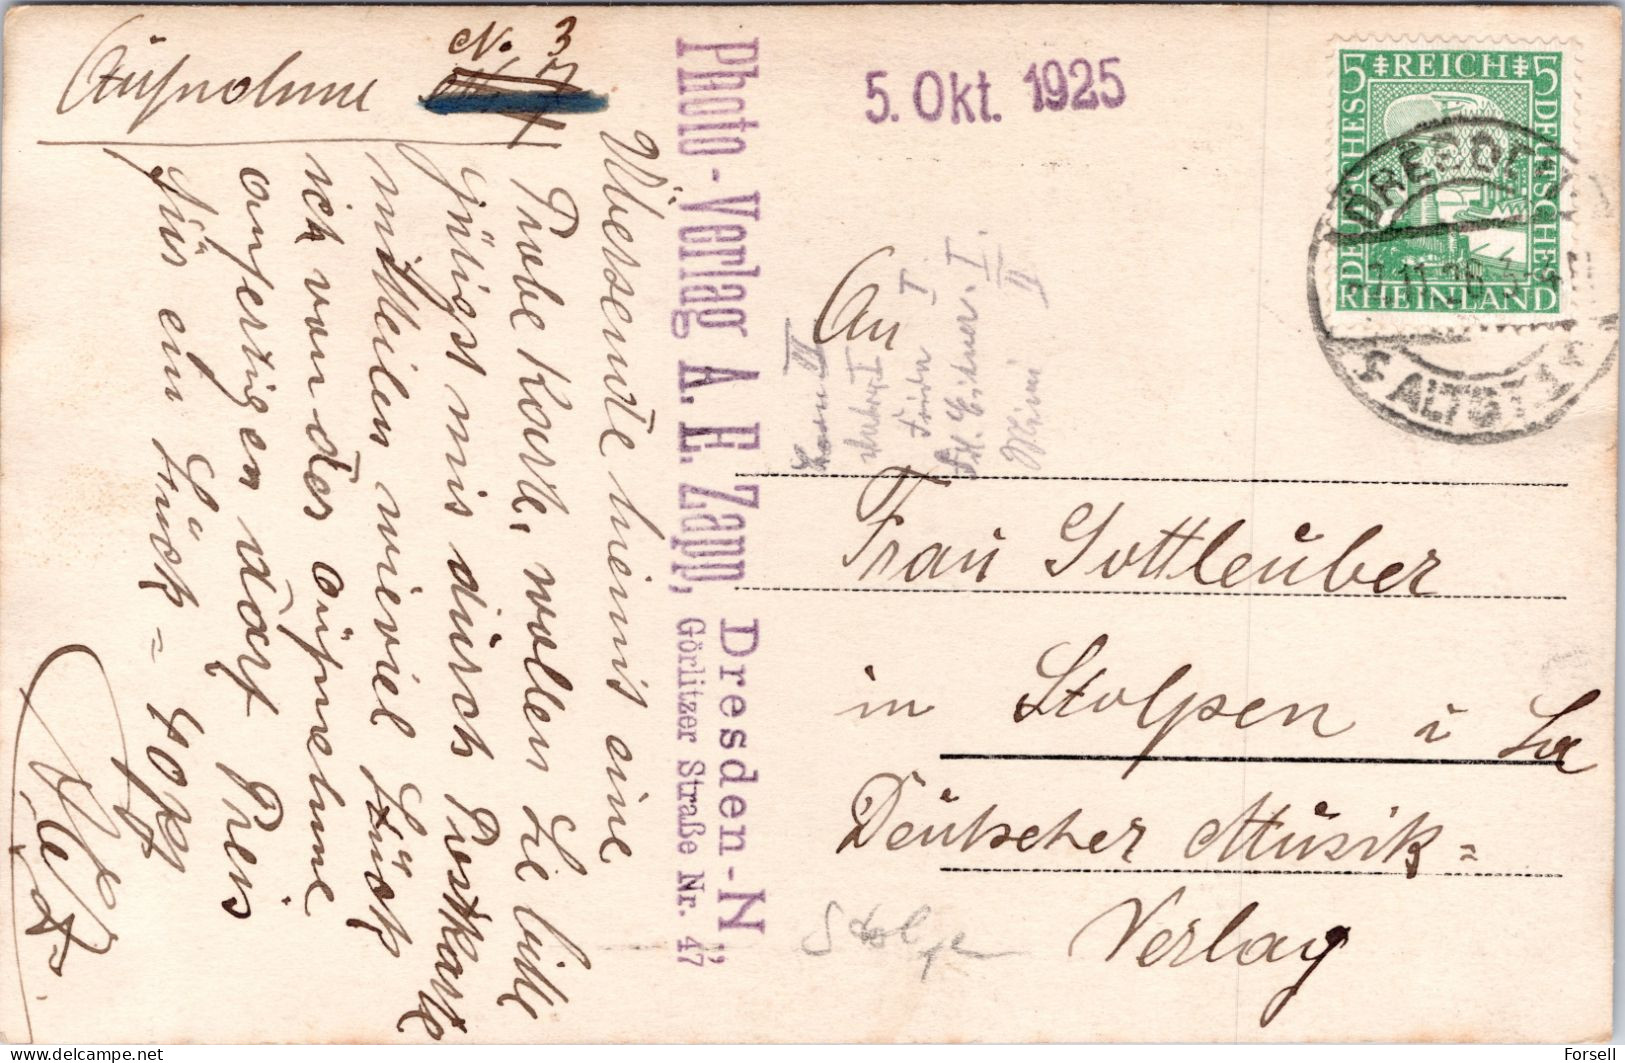 Aufnahme No. 3
Übersende hiermit eine
Probe Karte, wollen Sie bitte
gütigst mir durch Postkarte
mitteilen wieviel Stück
ich von der aufnehme
anfertigen darf Preis
für ein Stück = 40 Pfg
Photo-Verlag A. E. Zapp,
Dresden-N.,
Görlitzer Straße Nr. 47
5. Okt. 1925
5 REICH 5
DEUTSCHES
DEUTSCHES
RHEINLAND
DRESDEN
ALTST. 1
An
I.
I
II
Frau Gottleuber
in Stolpen i Sa
Deutscher Musik=
Verlag
Stolpen
www.delcampe.net
Forsell